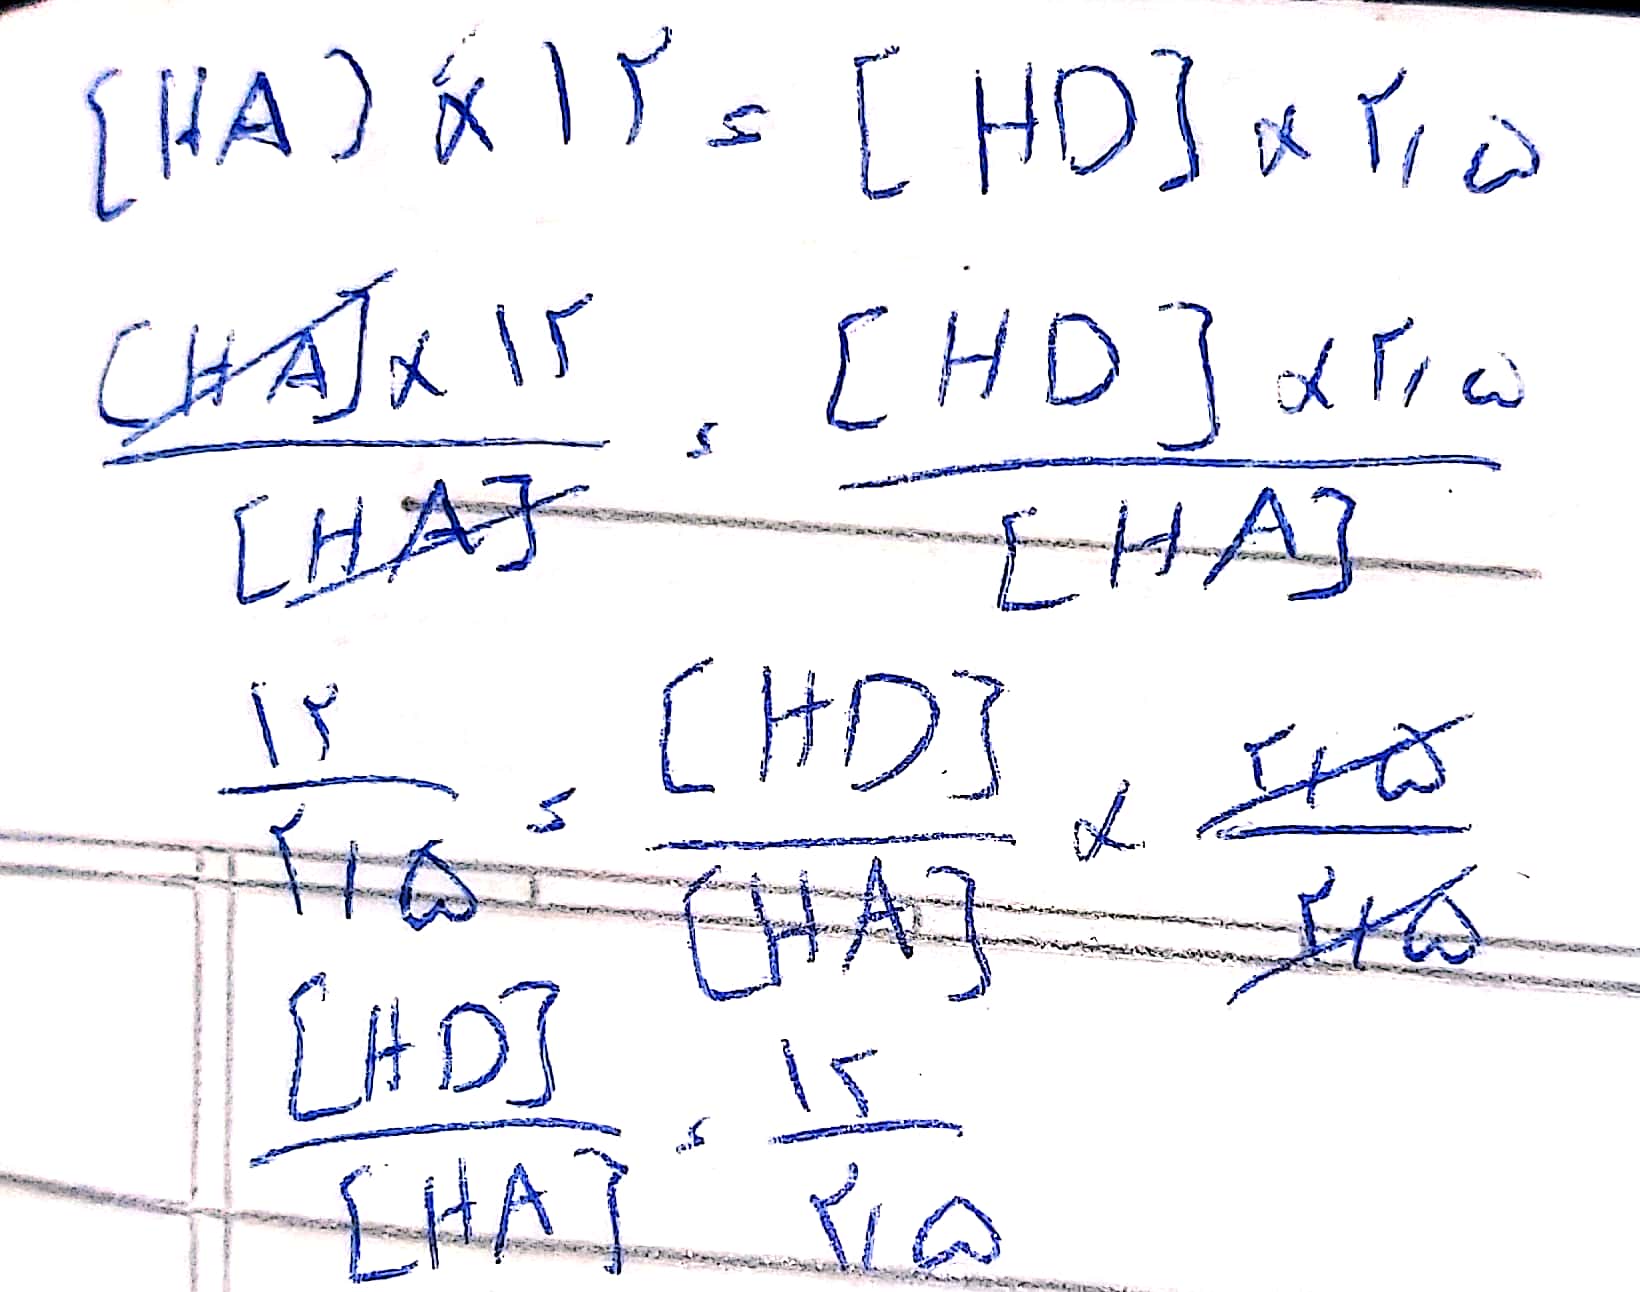 [HA] × ۱۲ = [HD] × ۲,۵
[HA] × ۱۲ / [HA] = [HD] × ۲,۵ / [HA]
۱۲ / ۲,۵ = [HD] / [HA] × ۲,۵ / ۲,۵
[HD] / [HA] = ۱۲ / ۲,۵